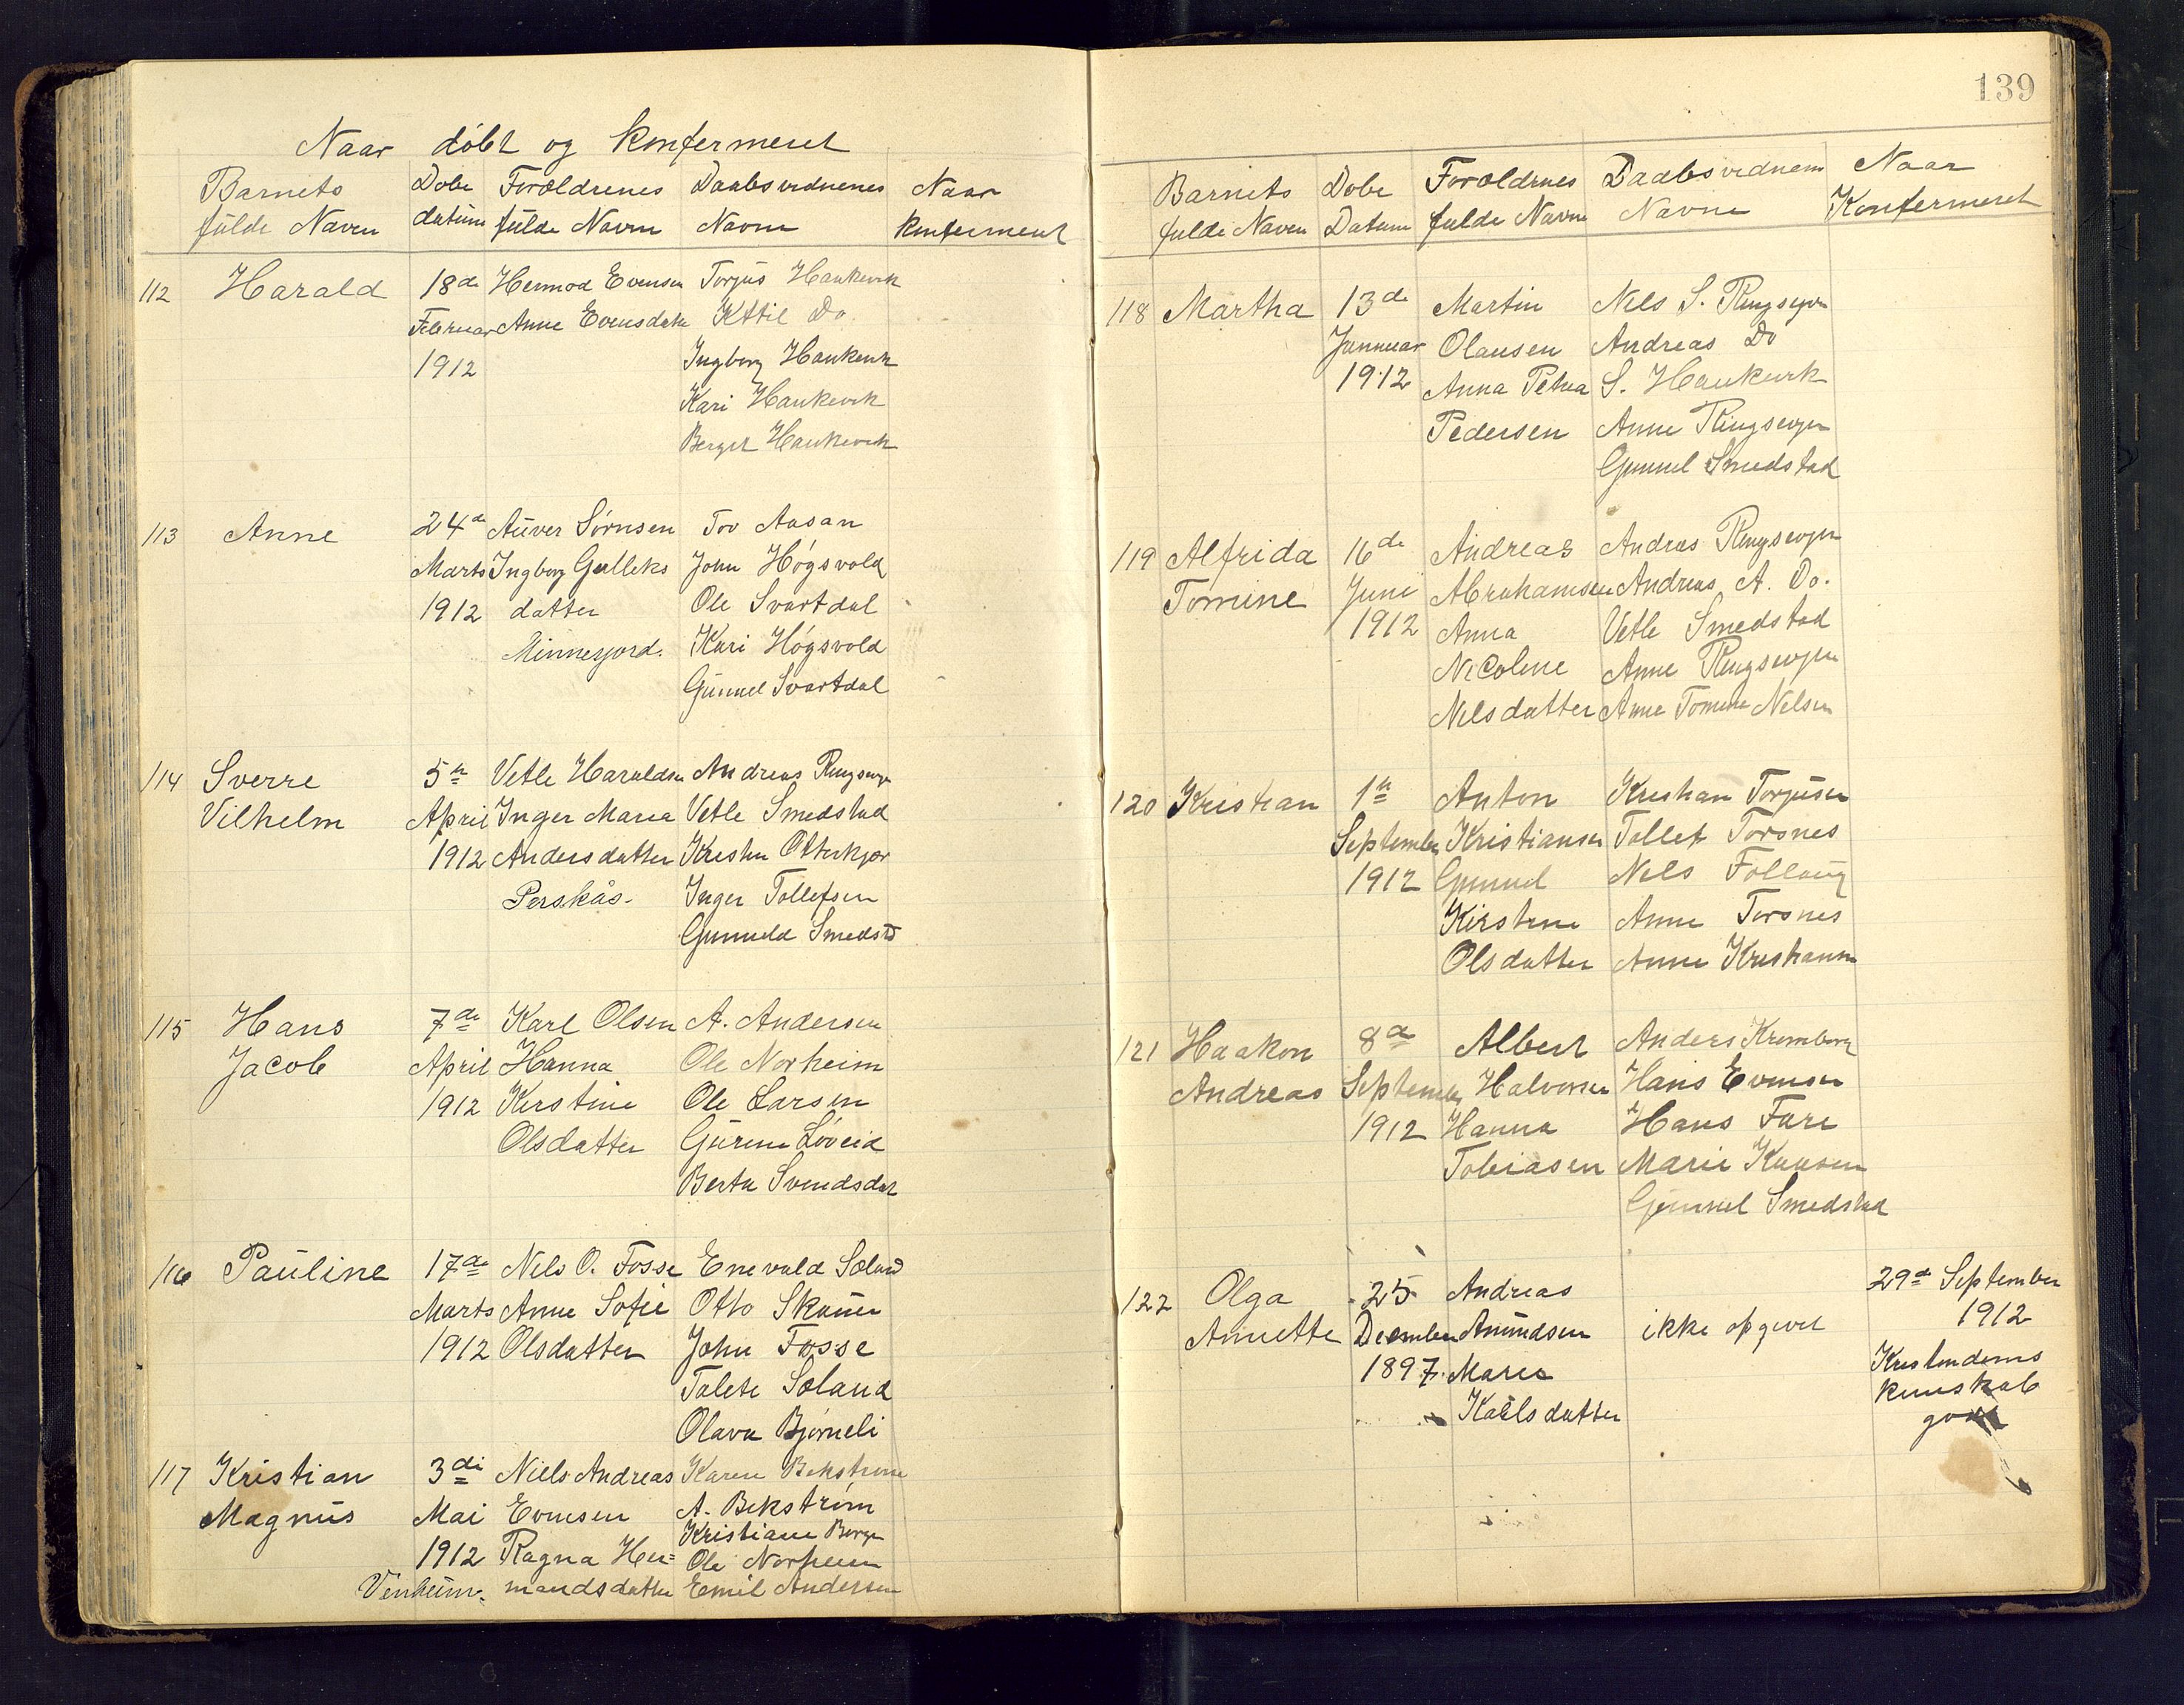 Naar döbt og konfermeret
Barnets Dobe Forældrenes Daabsvidnenes Naar
fulde Navn datum fulde Navn Navne konfermeret
112 Harald 18de Hermod Evensen Torjus Haukevik
Februar Anne Evensdatter Kittil Do
1912 Ingborg Haukevik
Kari Haukevik
Berget Haukevik
113 Anne 24de Auver Sørnsen Tov Aasan
Marts Ingborg Gulleks John Høgsvold
1912 datter Ole Svartdal
Minnesjord. Kari Høgsvold
Gunnel Svartdal
114 Sverre 5te Vetle Haraldsen Andreas Ringsevjen
Vilhelm April Inger Maria Vetle Smedstad
1912 Andersdatter Otterkjær
Perskås. Inger Tollefsen
Smedstd
115 Hans 7de Karl Olsen A. Andersen
Jacob April Hanna Ole Norheim
1912 Kirstine Ole Larsen
Olsdatter Løveid
Berta Svendsdat
116 Pauline 17de Nils O. Fosse Enevald Søland
Marts Anne Sofie Otto
1912 Olsdatter John Fosse
Talete Søland
Olava Bjørneli
117 Kristian 3di Niels Andreas Karen
Magnus Mai Evensen A. Bekstrøm
1912 Ragna Her= Kristiane Berge
Ole Norheim
mandsdatter Emil Andersen
139
Barnets Dobe Forældrnes Daabsvidnem Naar
fulde Navn Datum fulde Navne Navne Konfermeret
118 Martha 13de Martin Nils S. Ringsevjen
Jannuar Olausen Andreas Do
1912 Anna Petrea S. Haukevik
Pedersen Anne Ringsevjen
Gunnel Smedstad
119 Alfrida 16de Andreas Andreas Ringsevjen
Tomine Juni Abrahamsen Andreas A. Do.
1912 Anna Vetle Smedstad
Nicoline Anne Ringsevjen
Nilsdatter Anne Tomine Nelsen
120 Kristian 1te Anton Kristian Torjusen
September Kristiansen Tollef Torsnes
1912 Gunnel Nils
Kirstine Anne Torsnes
Olsdatter Anne
121 Haakon 8de Albert Anders
Andreas September Halvorsen Hans Evensen
1912 Hanna Hans Fare
Tobiasen Marie
Gunnel Smedstad
122 Olga 25 Andreas 29de September
Annette December Amundsen ikke opgivet 1912
1897. Maria Kristendoms
Karlsdatter kunskab
godt